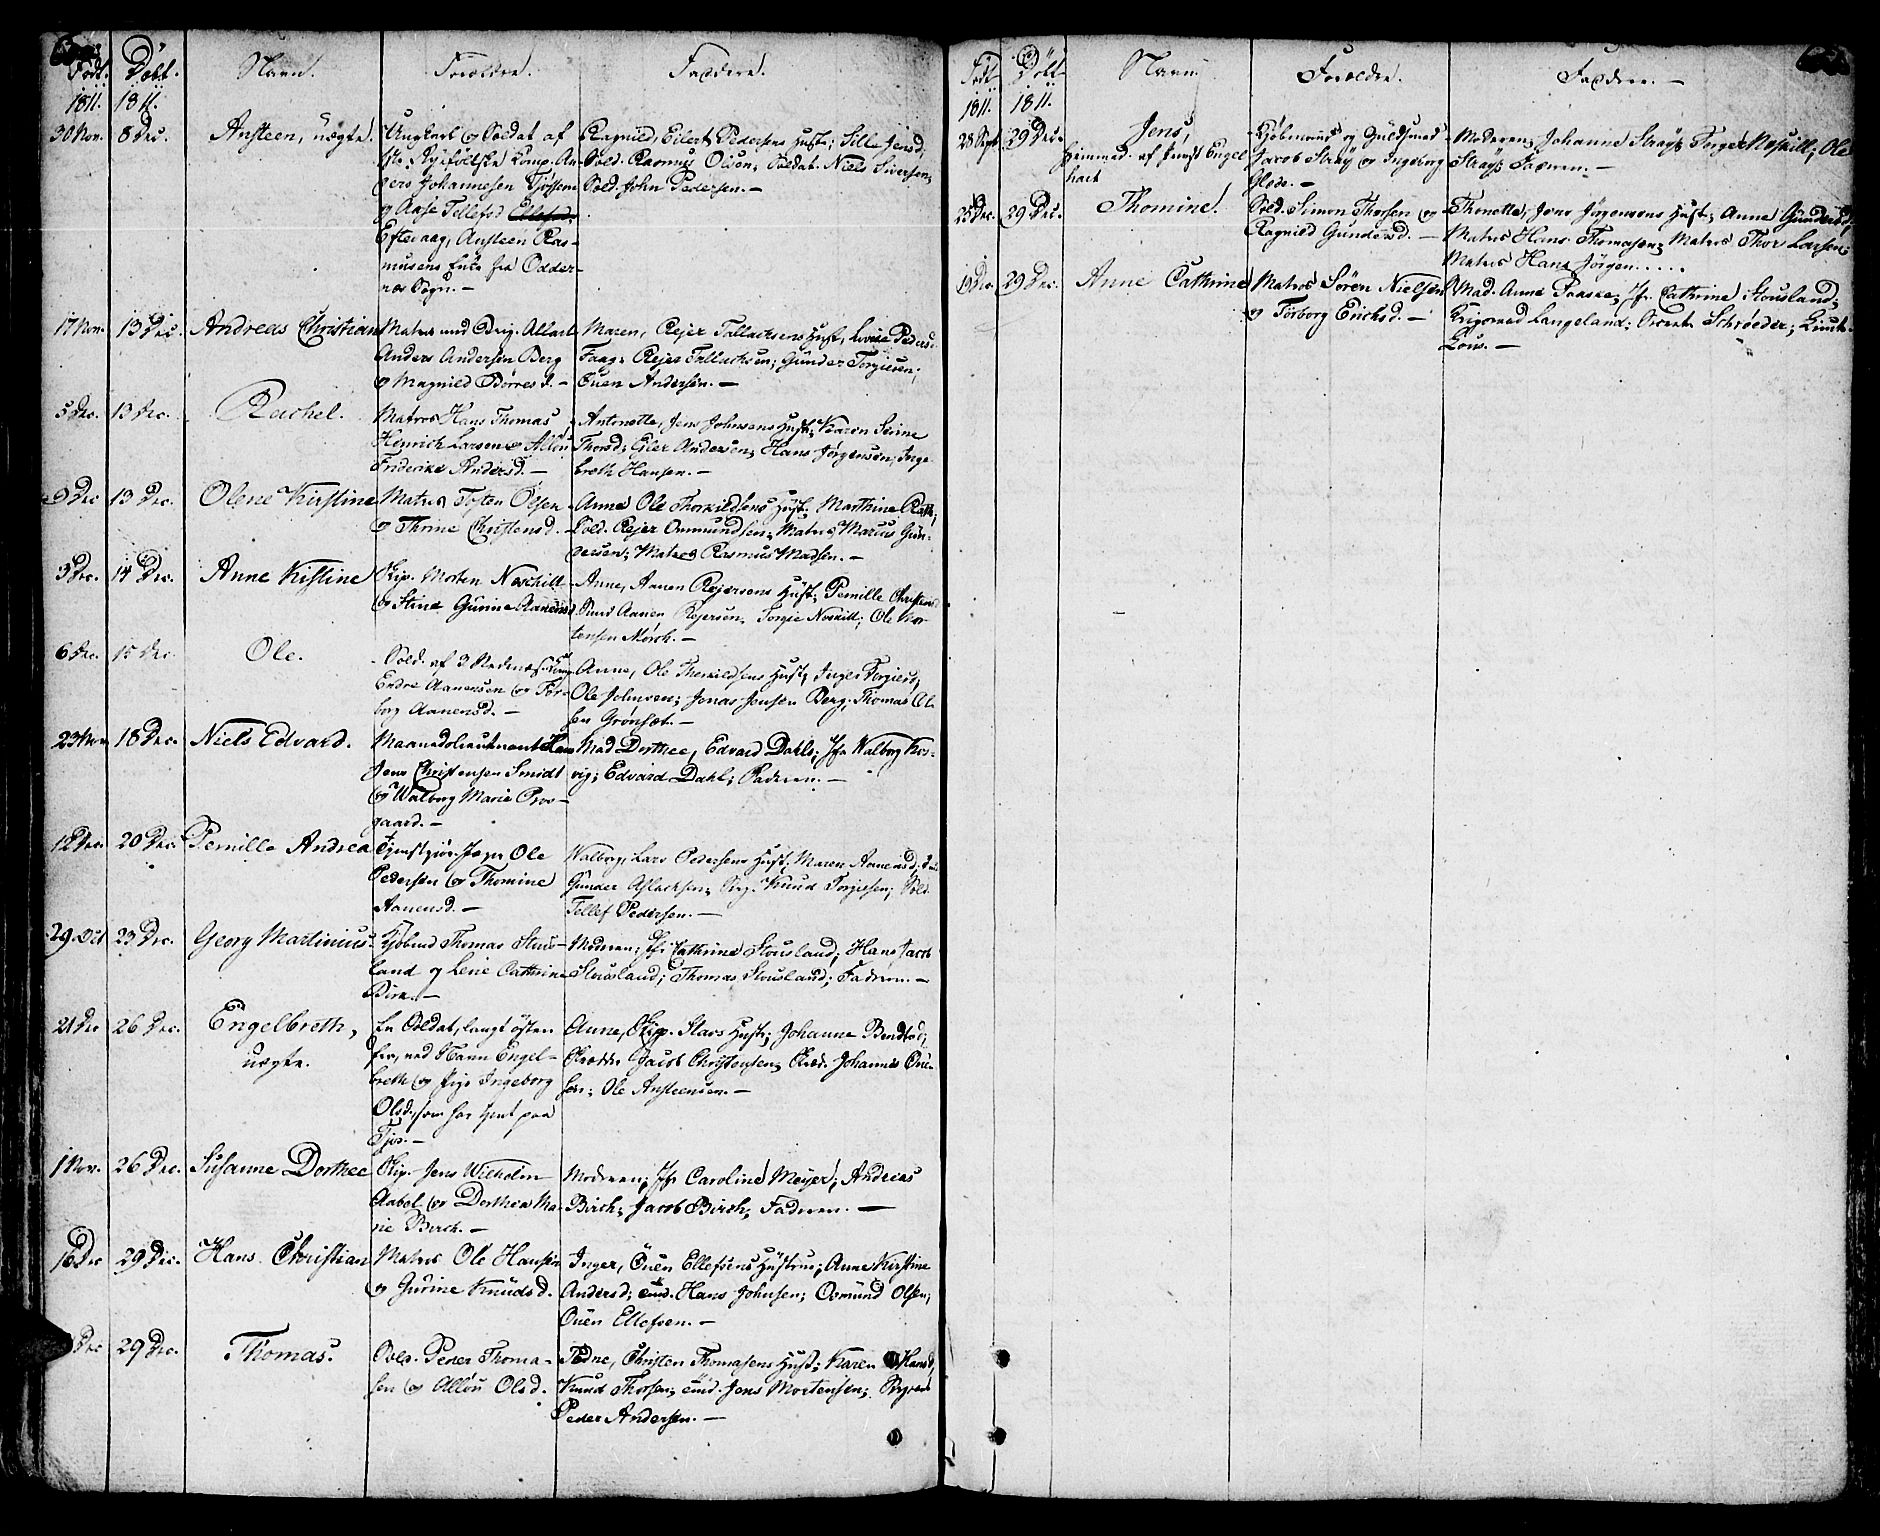 Født. Døbt. Navn. Forældre. Faddere.
1811. 1811.
30 Nov. 8 Dec. Ansteen, uægte. Ungkarl og Soldat af
Anders Johannesen Tjøssem
og Aase Tellefsd.
Eftevaag, Ansteen Ras-
musens Enke fra Odder-
næs Sogn. —
Ragnild, Eilert Pedersens Hust; Sille Jensd,
Sold. Rasmus Olsen; Soldat Niels Siversen;
Sold. John Pedersen. —
17 Nov. 13 Dec. Andreas Christian Matros
Anders Andersen Berg
og Magnild Børresd. —
Maren, Rejer Tallachsens Hust,
Rejer Tallachsen; Gunder Torgiusen;
Ouen Andersen. —
5 Dec. 13 Dec. Rachel. Matros Hans Thomas
Heinrich Larsen og
Friderike Andersd. —
Antonette, Jens Johnsens Hust; Karen Sirine
Thorsd; Eiler Andersen; Hans Jørgensen; Inge-
breth Hansen. —
9 Dec 13 Dec. Olene Kirstine Matros Tosten Olsen
og Thrine Christensd. —
Anne Ole Thorkildsens Hust; Marthine
Sold. Rejer Osmundsen; Matros Marcus Gun-
dersen; Matros Rasmus Madsen. —
3 Dec. 14 Dec. Anne Kistine Skip. Morten Neschill
og Stine Gurine Aanensd
Anne, Aanen Rejersens Hust; Pernille Christensd
Knud Aanen Rejersen, Torgie Neskill; Ole Mor-
tensen Mørch. —
6 Dec. 15 Dec. Ole. Sold. af 3
Endre Aanensen og Tor-
borg Aanensd. —
Anne, Ole Thorkildsens Hust; Inger Torgiusd;
Ole Johnsen; Jonas Jensen Berg; Thomas Ol-
sen Grønsæt. —
23 Nov 18 Dec. Niels Edvard. Maanedslieutnant
Jens Christensen Smidt
og Walborg Marie Pros-
gaard. —
Mad Dorthee, Edvard Dahls; Jfr Walborg
Edvard Dahl; Faderen. —
12 Dec. 20 Dec. Pernille Andrea Ole
Pedersen og Thomine
Aanensd. —
Walborg, Lars Pedersens Hust; Maren Aanensd;
Gunder Aslachsen; Knud Torgiusen; Sold.
Tellef Pedersen. —
29 Oct 23 Dec. Georg Martinius Kjøbmd Thomas Stous-
land og Lene Cathrine
Birch. —
Moderen; Jfr Cathrine Stousland; Hans Jacob
Stousland; Thomas Stousland; Faderen. —
21 Dec 26 Dec. Engelbreth,
uægte.
En Soldat, langt østen
fra, ved Navn Engel-
breth og Pige Ingeborg
Olsd. som har tjent paa
Tjos. —
Anne, Skip. Stavs Hust; Johanne Bendtsd;
Jacob Christensen; Johannes Oue-
sen; Ole Ansteensen. —
1 Nov. 26 Dec. Susanne Dorthee Skip. Jens Wilhelm
Aabel og Dorthea Ma-
rie Birch. —
Moderen; Jfr Caroline Meyer; Andreas
Birch; Jacob Birch; Faderen. —
16 Dec 29 Dec. Hans Christian Matros Ole Hansen
og Gurine Knudsd.
Inger, Ouen Ellefsens Hustrue; Anne Kirstine
Andersd; Hans Johnsen; Osmund Olsen;
Ouen Ellefsen. —
Dec 29 Dec. Thomas. Sold. Peder Thoma-
sen og Olsd.
Christen Thomasens Hust; Karen Hansd;
Knud Thorsen; Jens Mortensen;
Peder Andersen. —
Født Døbt Navn Forældre. Faddere. —
1811. 1811.
28 Sept 29 Dec. Jens,
hjemmed. af Provst Engel
hart
Kjøbmand og Guldsmed
Jacob Stray og Ingeborg
Glode. —
Moderen; Johanne Strays; Inger Neskill; Ole
Stray; Faderen. —
25 Dec. 29 Dec. Thomine. Sold. Simon Thorsen og
Ragnild Gundersd. —
Thonette, Jens Jørgensens Hust; Anne Gundersd;
Matros Hans Thomasen; Matros Thor Larsen;
Matros Hans Jørgen.....
19 Dec 29 Dec. Anne Cathrine Matros Søren Nielsen
og Torborg Erichsd. —
Mad. Anne Paaske; Jfr. Cathrine Stousland;
Langeland; Schrøeder;
Lous. —